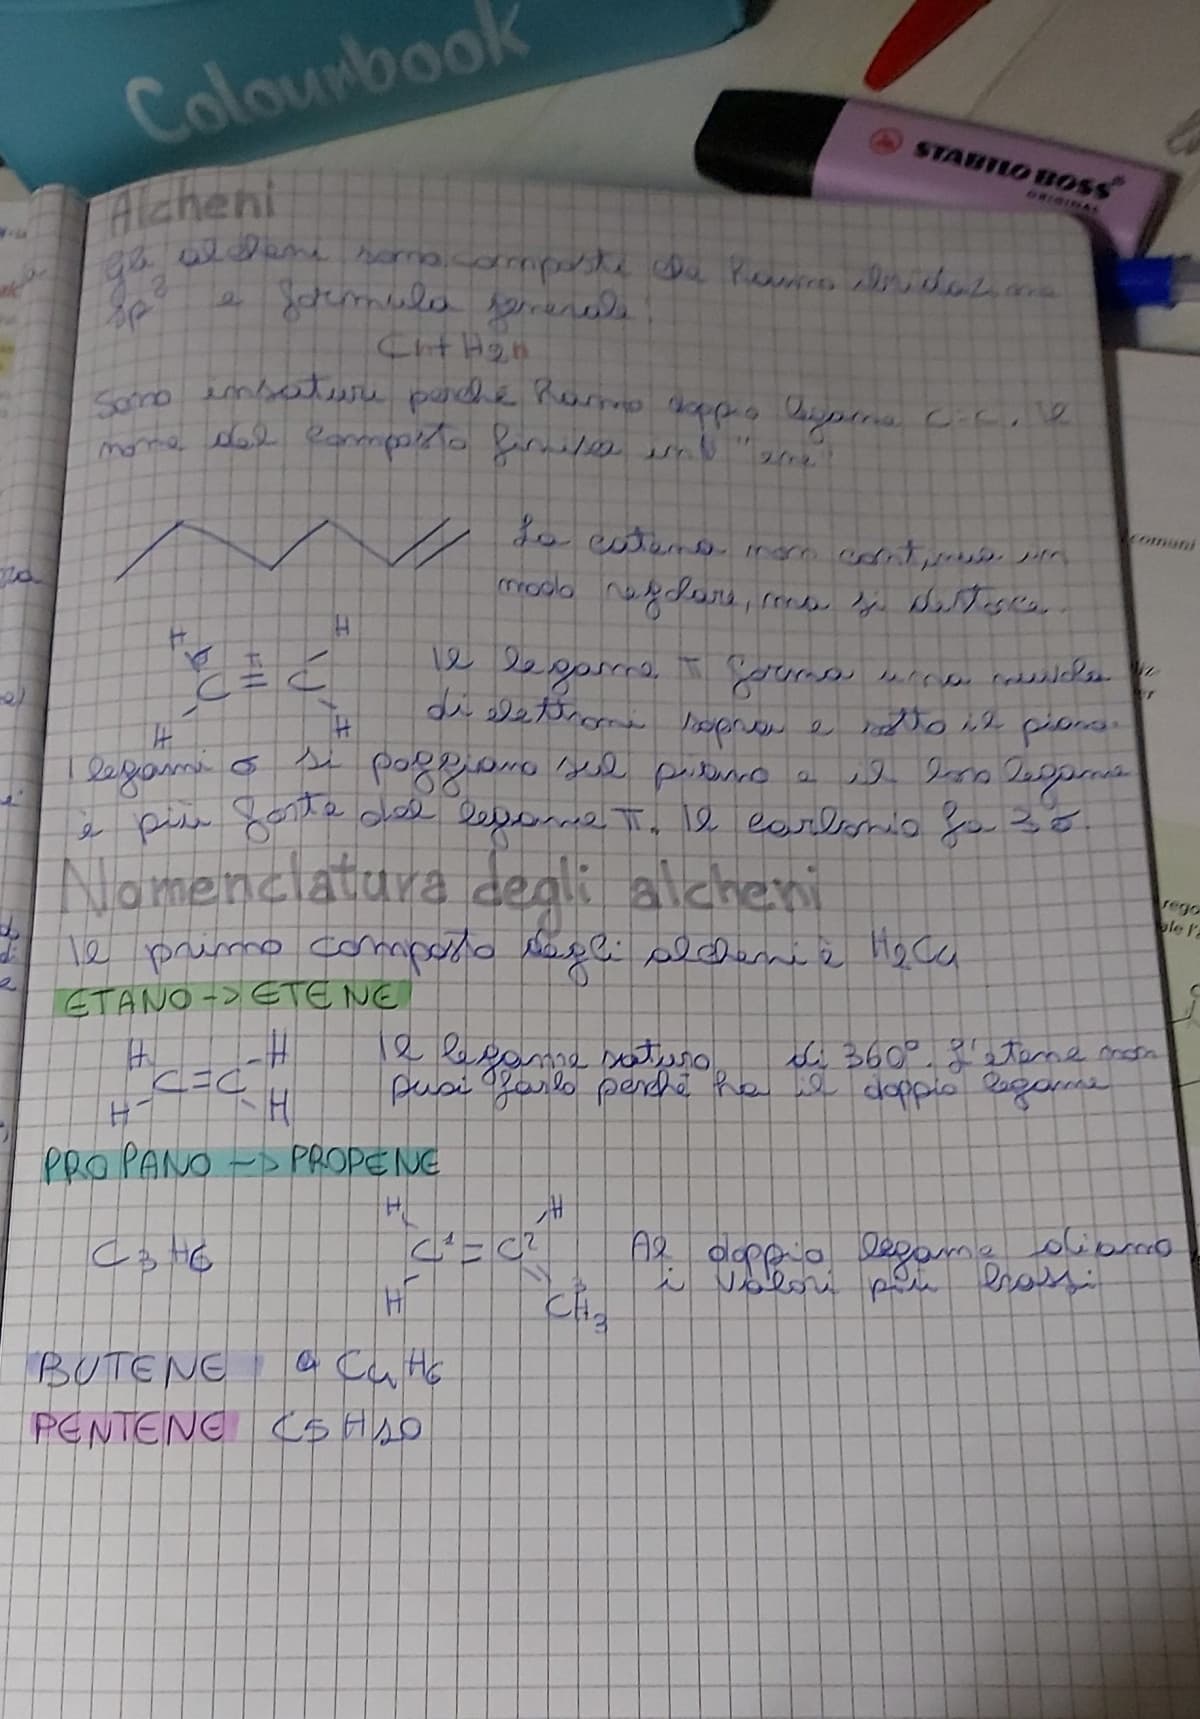 Colourbook
STABILO BOSS
ORIGINAL
Alcheni
Gli alcheni sono composti che hanno ibridazione
sp² e formula generale:
CnH2n
Sono insaturi perché hanno doppio legame C-C. Il
nome del composto finisce in "ene"
La catena non continua in
modo regolare, ma si
H H
σ π
C = C
H H
Il legame π forma una nuvola
di elettroni sopra e sotto il piano.
I legami σ si poggiano sul piano e il loro legame
è più forte del legame π. Il carbonio fa 3σ.
Nomenclatura degli alcheni
Il primo composto degli alcheni è H2C4
ETANO -> ETENE
H H
C=C
H H
Il legame ruota di 360°. L'etene non
puoi farlo perché ha il doppio legame
PROPANO -> PROPENE
H H
C3H6 C¹=C²
H ³CH3
Al doppio legame diamo
i valori più bassi
BUTENE C4H6
PENTENE C5H10
comuni
rego
ale l'